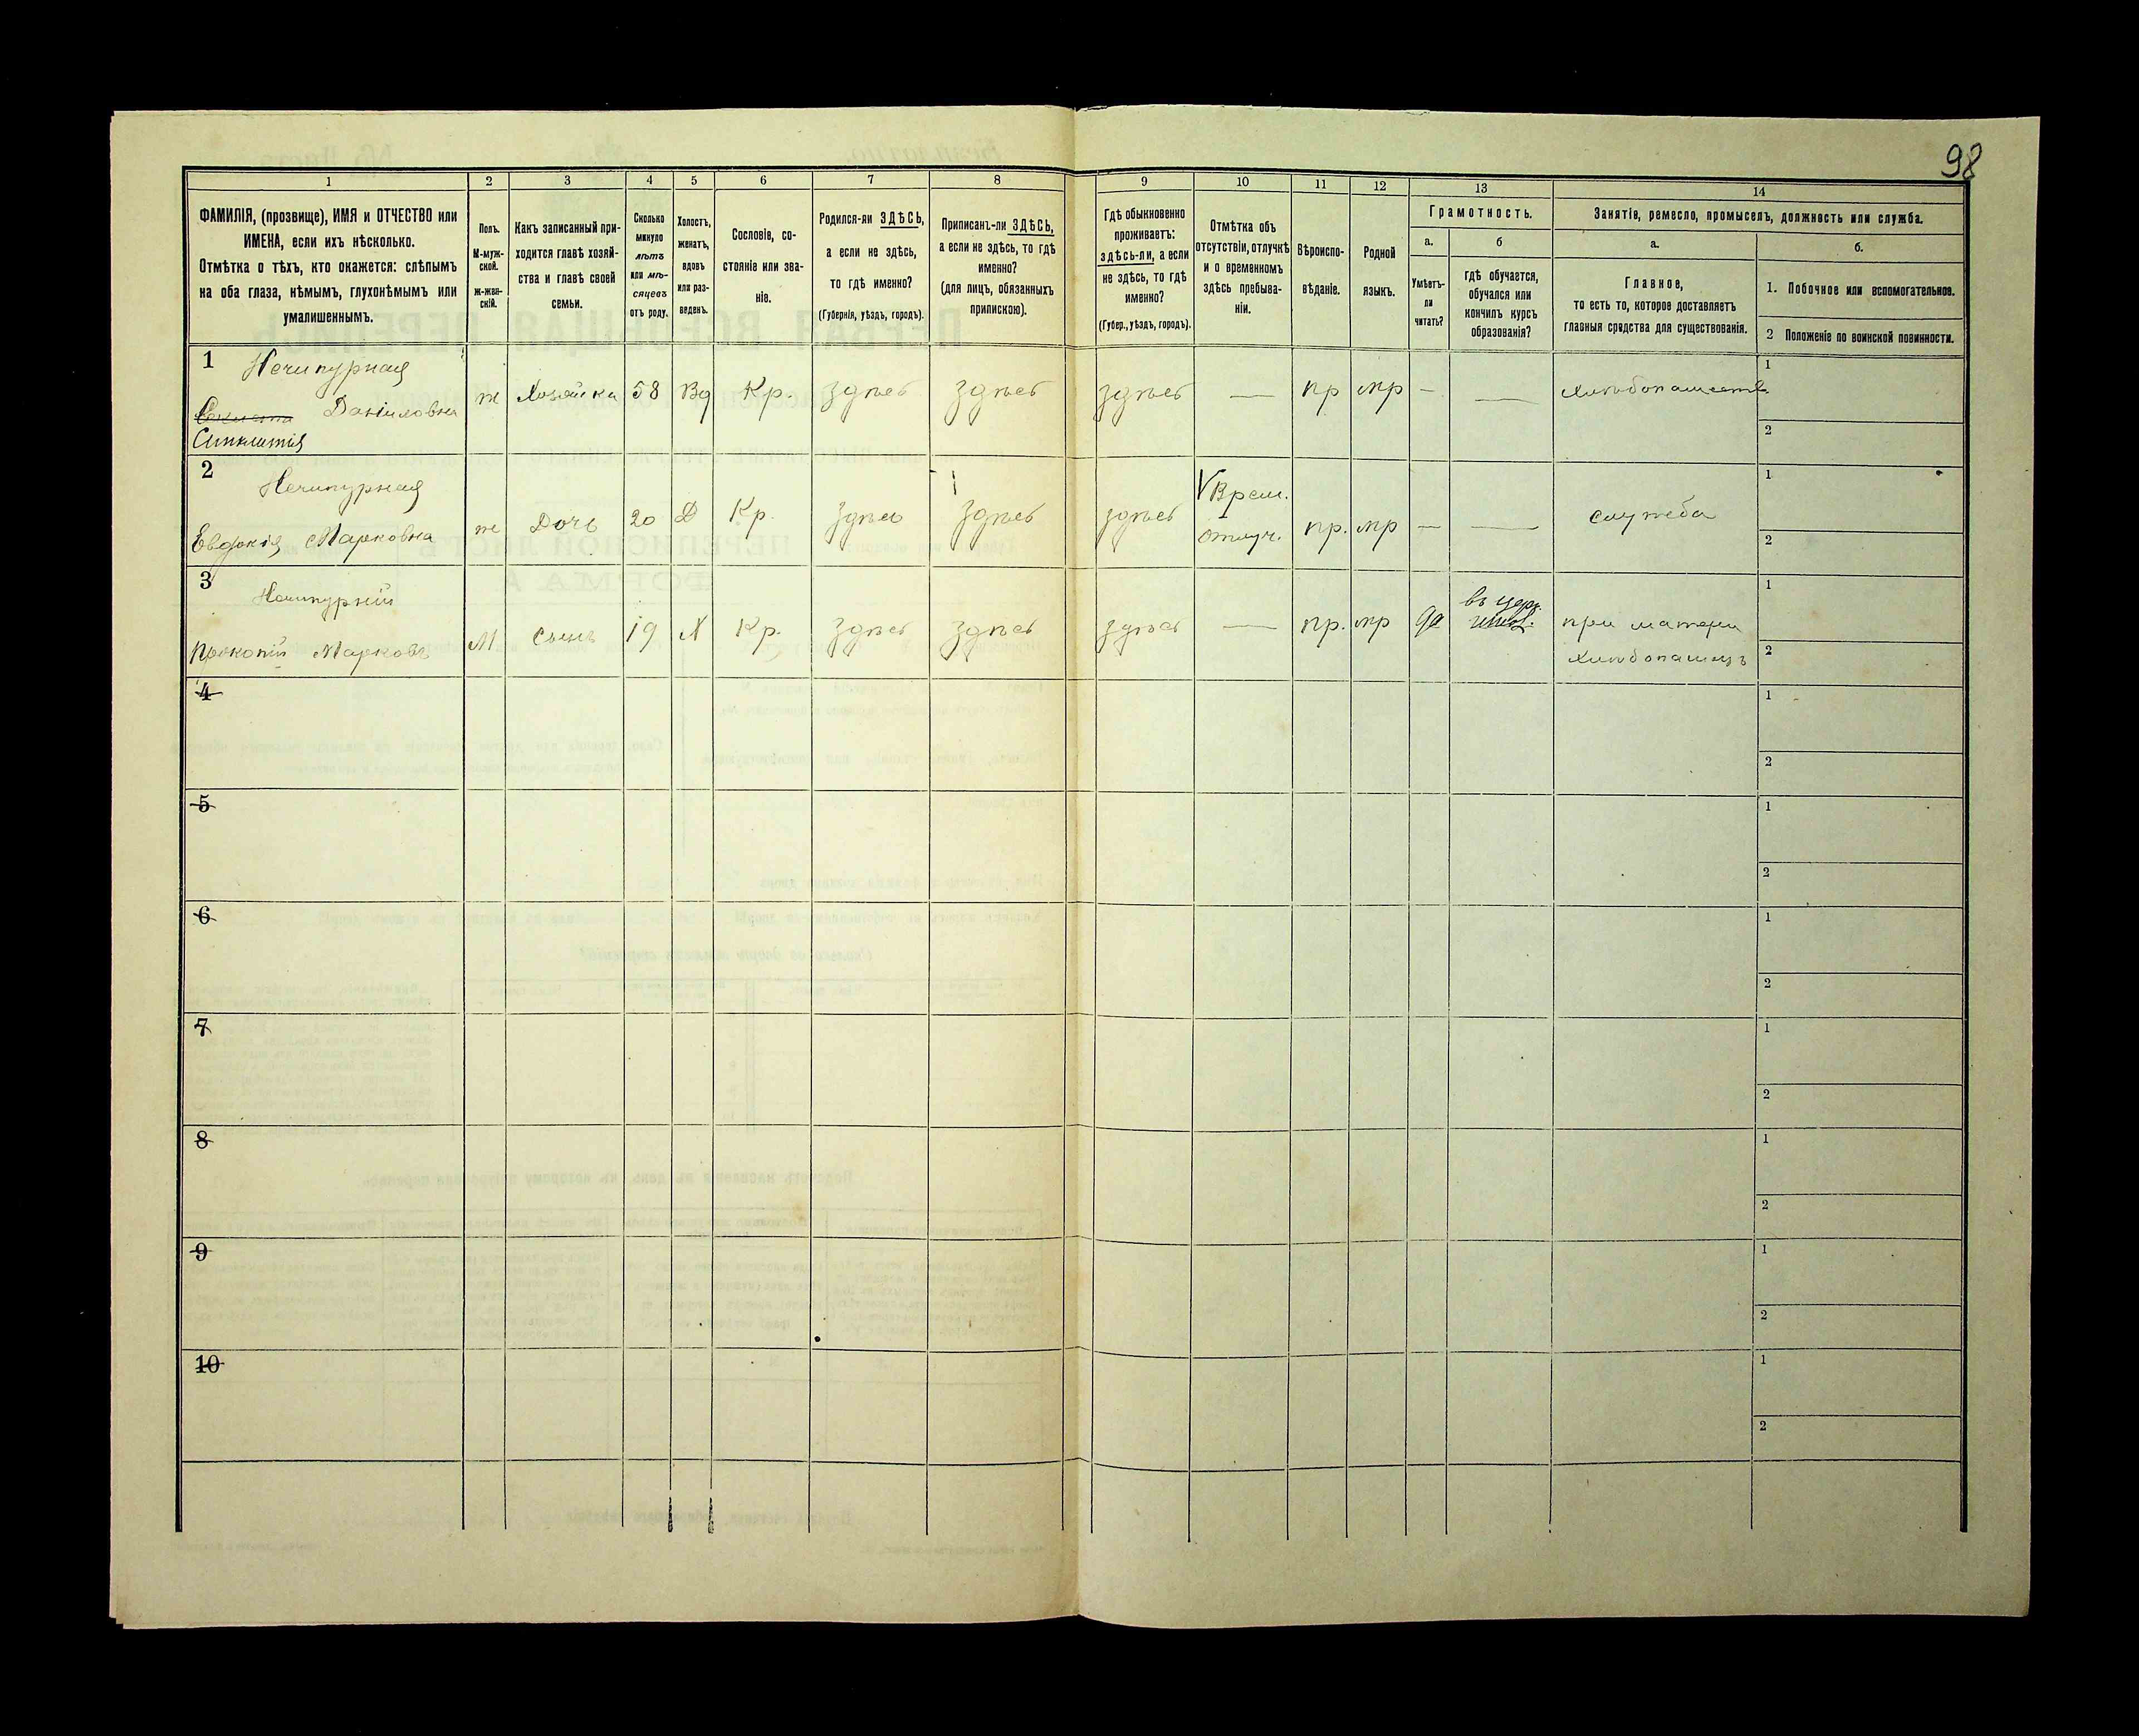 98
1 2 3 4 5 6 7 8 9 10 11 12 13 14
ФАМИЛІЯ, (прозвище), ИМЯ и ОТЧЕСТВО или
ИМЕНА, если ихъ нѣсколько.
Отмѣтка о тѣхъ, кто окажется: слѣпымъ
на оба глаза, нѣмымъ, глухонѣмымъ или
умалишеннымъ.
Полъ.
М-муж-
ской.
Ж-жен-
скій.
Какъ записанный при-
ходится главѣ хозяй-
ства и главѣ своей
семьи.
Сколько
минуло
лѣтъ
или мѣ-
сяцевъ
отъ роду.
Холостъ,
женатъ,
вдовъ
или раз-
веденъ.
Сословіе, со-
стояніе или зва-
ніе.
Родился-ли ЗДѢСЬ,
а если не здѣсь,
то гдѣ именно?
(Губернія, уѣздъ, городъ).
Приписанъ-ли ЗДѢСЬ,
а если не здѣсь, то гдѣ
именно?
(для лицъ, обязанныхъ
припискою).
Гдѣ обыкновенно
проживаетъ:
здѣсь-ли, а если
не здѣсь, то гдѣ
именно?
(Губер., уѣздъ, городъ).
Отмѣтка объ
отсутствіи, отлучкѣ
и о временномъ
здѣсь пребыва-
ніи.
Вѣроиспо-
вѣданіе.
Родной
языкъ.
Грамотность.
а.
Умѣетъ-
ли
читать?
б
гдѣ обучается,
обучался или
кончилъ курсъ
образованія?
Занятіе, ремесло, промыселъ, должность или служба.
а.
Главное,
то есть то, которое доставляетъ
главныя средства для существованія.
б.
1. Побочное или вспомогательное.
2 Положеніе по воинской повинности.
1 Нечипурная
Даниловна
Синклитія
ж Хозяйка 58 Вд Кр. здѣсь здѣсь здѣсь — пр мр — — хлѣбопашество
1
2
2 Нечипурная
Евдокія Марковна
ж Дочь 20 Д Кр. здѣсь здѣсь здѣсь
Врем.
отлуч.
пр. мр — — служба
1
2
3 Нечипурній
Прокопій Марковъ
М сынъ 19 Х Кр. здѣсь здѣсь здѣсь — пр. мр да
въ церк.
школ.
при матери
хлѣбопашецъ
1
2
4
1
2
5
1
2
6
1
2
7
1
2
8
1
2
9
1
2
10
1
2